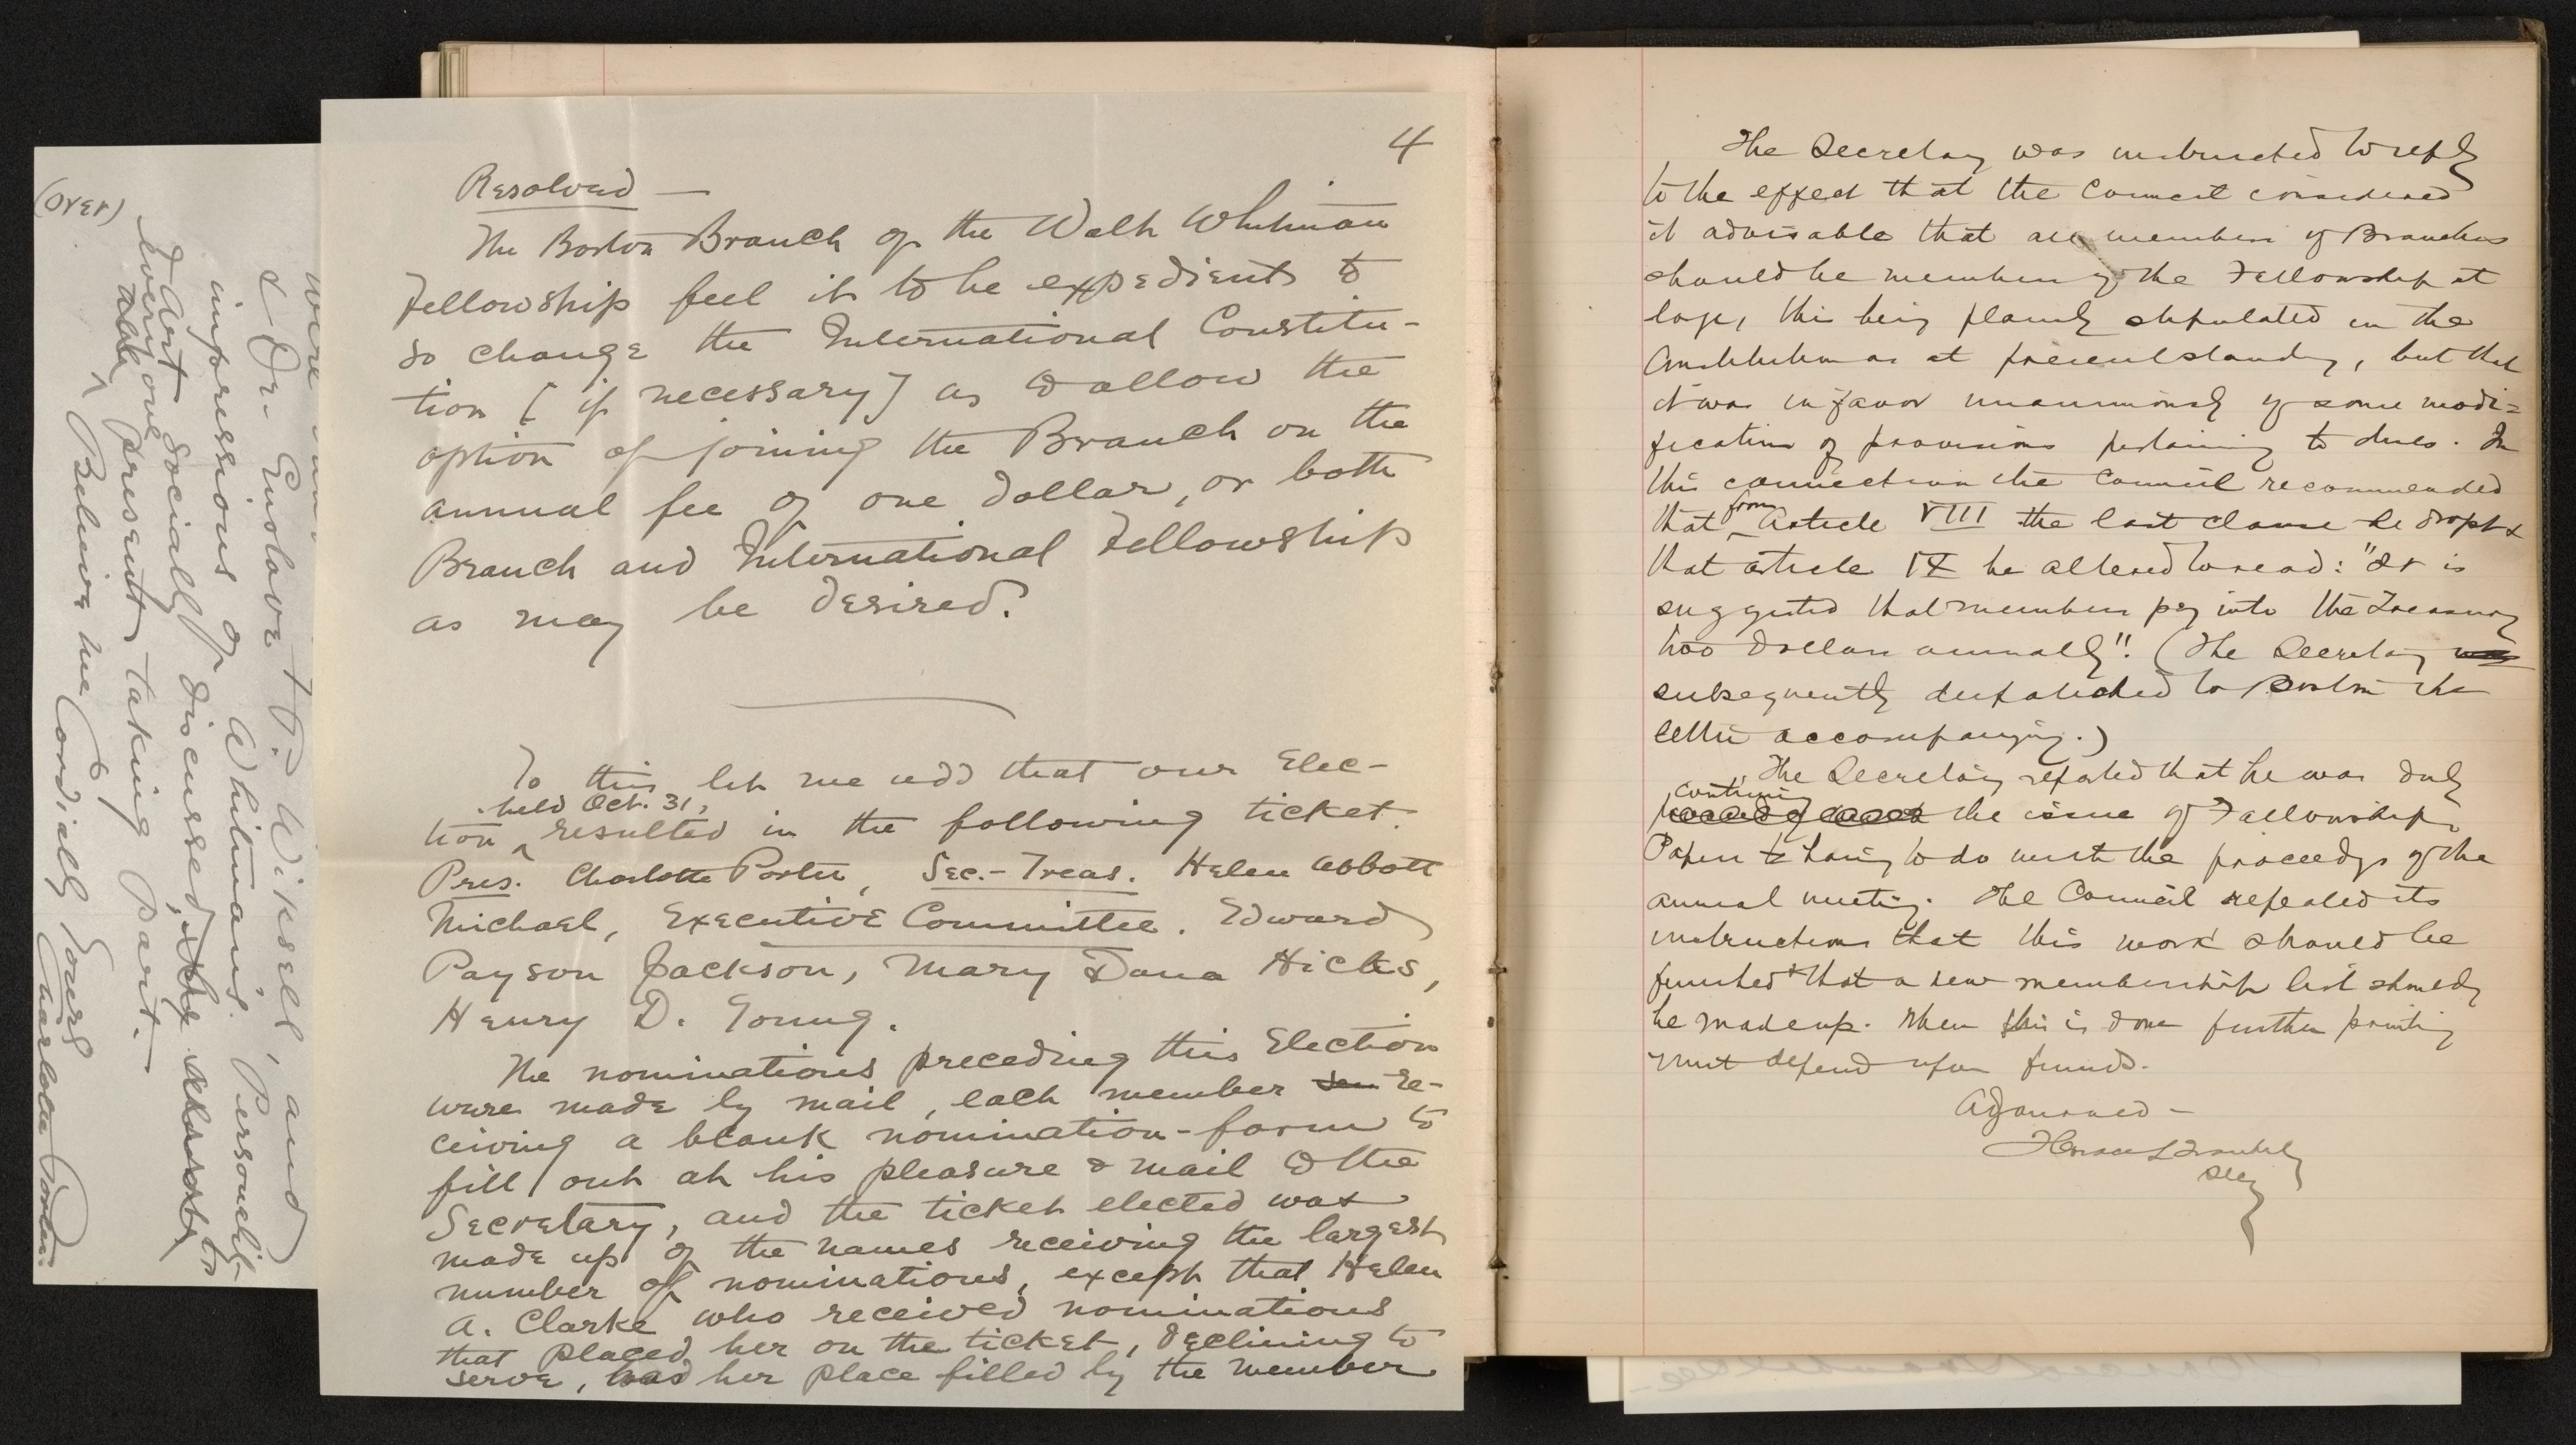 4
Resolved —
The Boston Branch of the Walt Whitman
Fellowship feel it to be expedient to
so change the International Constitu-
tion [if necessary] as to allow the
option of joining the Branch on the
annual fee of one dollar, or both
Branch and International Fellowship
as may be desired.
To this let me add that our Elec-
held Oct. 31,
tion ^ resulted in the following ticket.
Pres. Charlotte Porter, Sec.-Treas. Helen Abbott
Michael, Executive Committee. Edward
Payson Jackson, Mary Dana Hicks,
Henry D. Young.
The nominations preceding this Election
were made by mail, each member re-
ceiving a blank nomination-form to
fill out at his pleasure & mail to the
Secretary, and the ticket elected was
made up of the names receiving the largest
number of nominations, except that Helen
A. Clarke who received nominations
that placed her on the ticket, declining to
serve, had her place filled by the member
(over)
were
& Dr. Enslave H. D. Wiksell, and
impressions of Whitman's Personality
& Art socially discussed,
every one present taking part.
Believe me Cordially Yours
Charlotte Porter.
The Secretary was instructed to reply
to the effect that the Council considered
it advisable that all members of Branches
should be members of the Fellowship at
large, this being plainly stipulated in the
Constitution as at present standing, but that
it was in favor unanimously of some modi=
fications of provisions pertaining to dues. In
this connection the Council recommended
that ^from Article VIII the last clause be dropt &
that article IX be altered to read: "It is
suggested that members pay into the Treasury
two dollars annually". (The Secretary
subsequently despatched to Boston the
letter accompanying.)
The Secretary reported that he was duly
continuing
the issue of Fellowship
Papers having to do with the proceedgs of the
annual meeting. The Council repeated its
instructions that this work should be
finished & that a new membership list should
be made up. When this is done further printing
must depend upon funds.
Adjourned —
Horace L Traubel
Secy